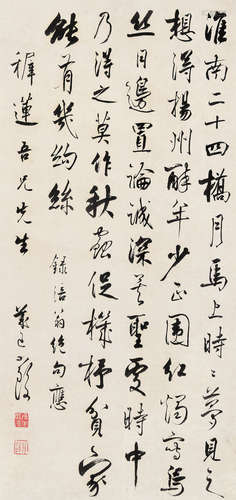 淮南二十四橋月馬上時々夢見之
想得揚州醉年少正圍紅燭寫烏
絲日邊置論誠深矣聖處時中
乃得之莫作秋蟲促機杼貧家
能有幾絇絲 錄涪翁絕句應
穉蓮吾兄先生